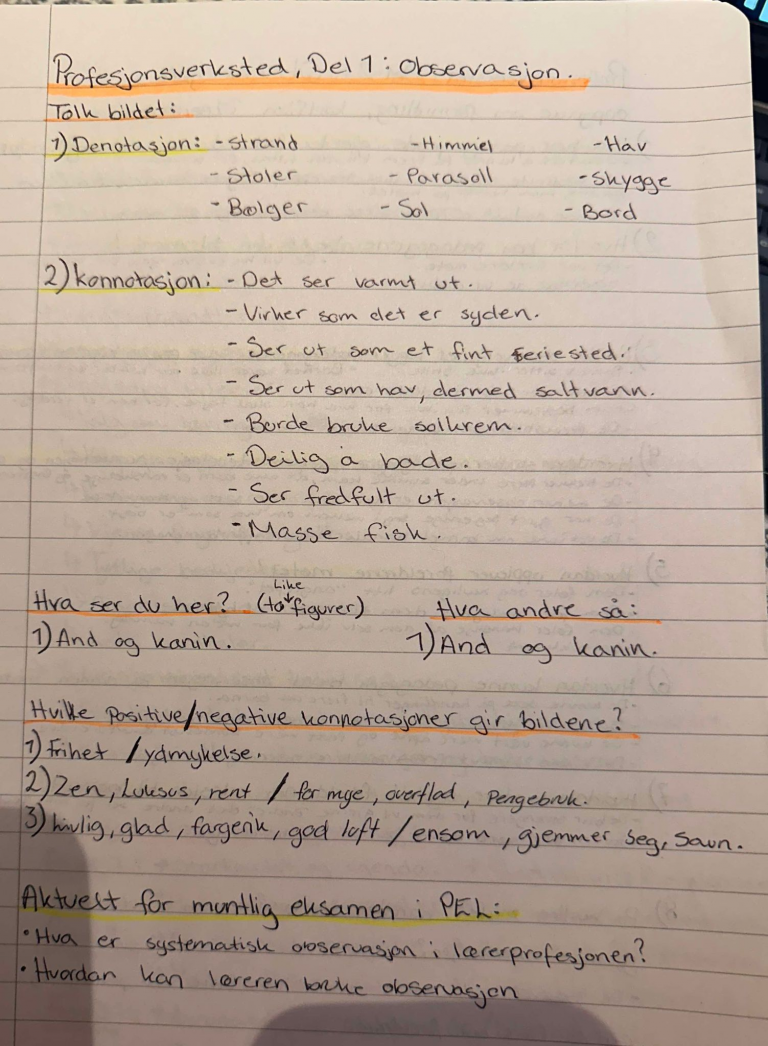 Profesjonsverksted, Del 1: Observasjon.
Tolk bildet:
1) Denotasjon: - Strand - Himmel - Hav
- Stoler - Parasoll - Skygge
- Bølger - Sol - Bord
2) konnotasjon: - Det ser varmt ut.
- Virker som det er syden.
- Ser ut som et fint feriested.
- Ser ut som hav, dermed saltvann.
- Burde bruke solkrem.
- Deilig å bade.
- Ser fredfult ut.
- Masse fisk.
Like
Hva ser du her? (to figurer) Hva andre så:
1) And og kanin. 1) And og kanin.
Hvilke Positive/negative konnotasjoner gir bildene?
1) Frihet / ydmykelse.
2) Zen, Luksus, rent / for mye, overflod, Pengebruk.
3) livlig, glad, fargerik, god luft / ensom, gjemmer seg, Savn.
Aktuelt for muntlig eksamen i PEL:
• Hva er systematisk observasjon i lærerprofesjonen?
• Hvordan kan læreren bruke observasjon